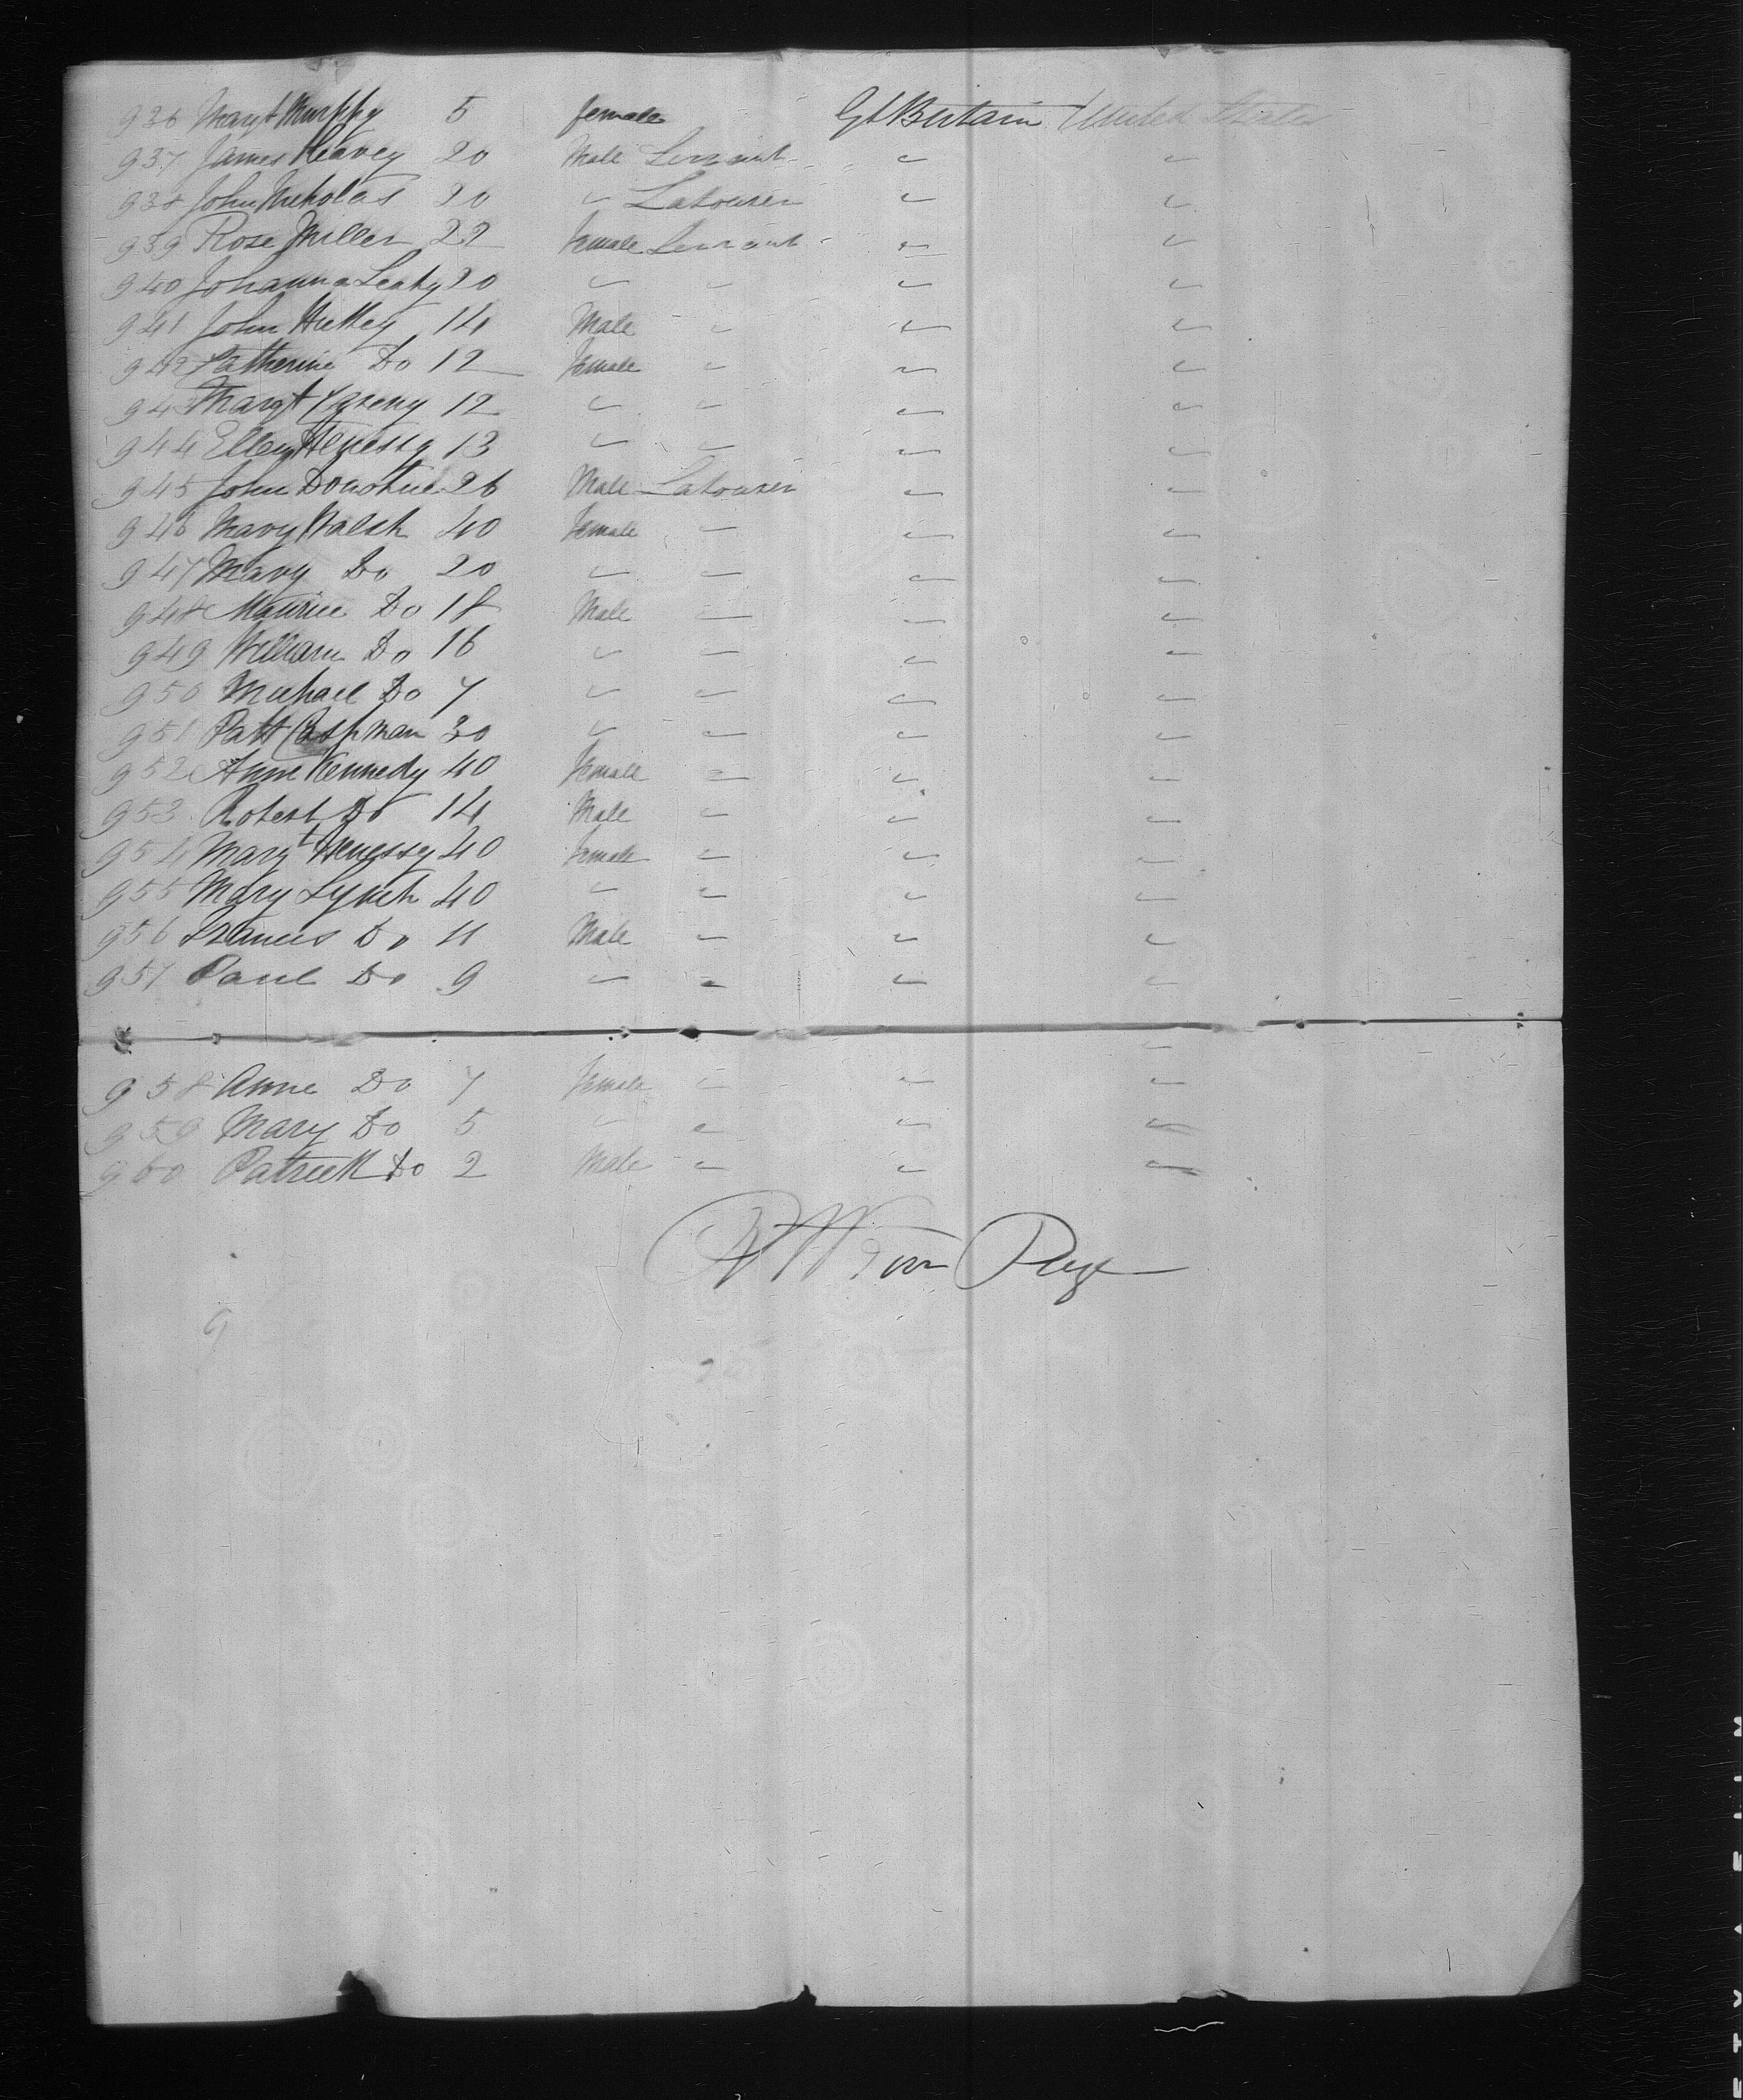 936 Margt Murphy 5 female Gt Britain United States
937 James Heavey 20 Male Servant " "
938 John Nicholas 20 " Labourer " "
939 Rose Miller 22 female Servant " "
940 Johanna Leahy 20 " " " "
941 John 14 Male " " "
942 Catherine Do 12 female " " "
943 Margt 12 " " " "
944 Ellen Henessy 13 " " " "
945 John Donohue 26 Male Labourer " "
946 Mary Walsh 40 female " " "
947 Mary Do 20 " " " "
948 Maurice Do 18 Male " " "
949 William Do 16 " " " "
950 Michael Do 7 " " " "
951 Patt Cashman 30 " " " "
952 Anne Kennedy 40 female " " "
953 Robert Do 14 Male " " "
954 Margt Henessy 40 female " " "
955 Mary Lynch 40 " " " "
956 Francis Do 11 Male " " "
957 Paul Do 9 " " " "
958 Anne Do 7 female " " "
959 Mary Do 5 " " " "
960 Patrick Do 2 Male " " "